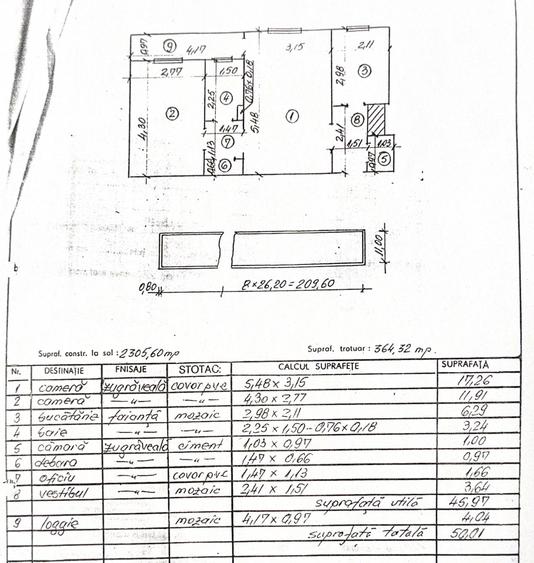 0,97 9 4,17 3,15 2,11
2,77 1,50 2,98 3
2,25 4 0,76×0,18
2 1 8
4,30 1,47 5,48 2,41
7 1,51 1,03
1,13 0,97 5
0,66 6
11,00
0,80 8×26,20=209,60
Supraf. constr. la sol: 2305,60 mp Supraf. trotuar: 364,32 mp.
Nr. DESTINAȚIE FNISAJE STOTAC: CALCUL SUPRAFEȚE SUPRAFAȚĂ
1 cameră zugrăveală covor pvc 5,48 × 3,15 17,26
2 cameră —"— —"— 4,30 × 2,77 11,91
3 bucătărie faianță mozaic 2,98 × 2,11 6,29
4 baie —"— —"— 2,25 × 1,50 - 0,76 × 0,18 3,24
5 cămară zugrăveală ciment 1,03 × 0,97 1,00
6 debara —"— —"— 1,47 × 0,66 0,97
7 oficiu —"— covor pvc 1,47 × 1,13 1,66
8 vestibul —"— mozaic 2,41 × 1,51 3,64
suprafață utilă 45,97
9 loggie mozaic 4,17 × 0,97 4,04
suprafață totală 50,01